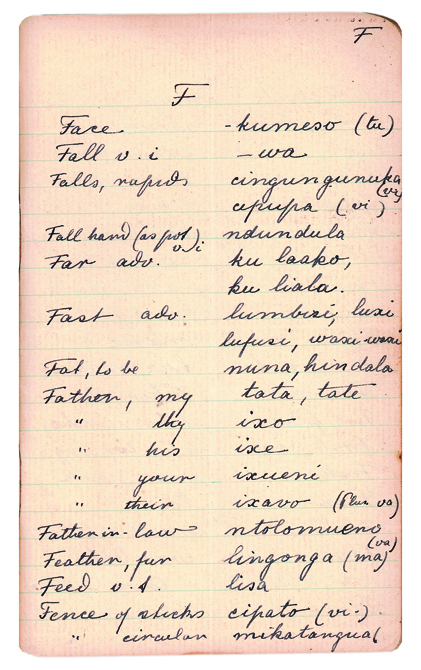 F
F
Face -kumeso (tu)
Fall v.i -wa
Falls, rapids cingungunuka (vi)
cipupa (vi)
Fall hard (as pot) v.i ndundula
Far adv. ku laako,
ku liala.
Fast adv. lumbizi, luxi
lufusi, waxi-waxi
Fat, to be nuna, hindala
Father, my tata, tate
" thy ixo
" his ixe
" your ixueni
" their ixavo (Plur va)
Father-in-law ntolomueno (va)
Feather, fur lingonga (ma)
Feed v.t. lisa
Fence of sticks cipato (vi-)
" circular mikatangual